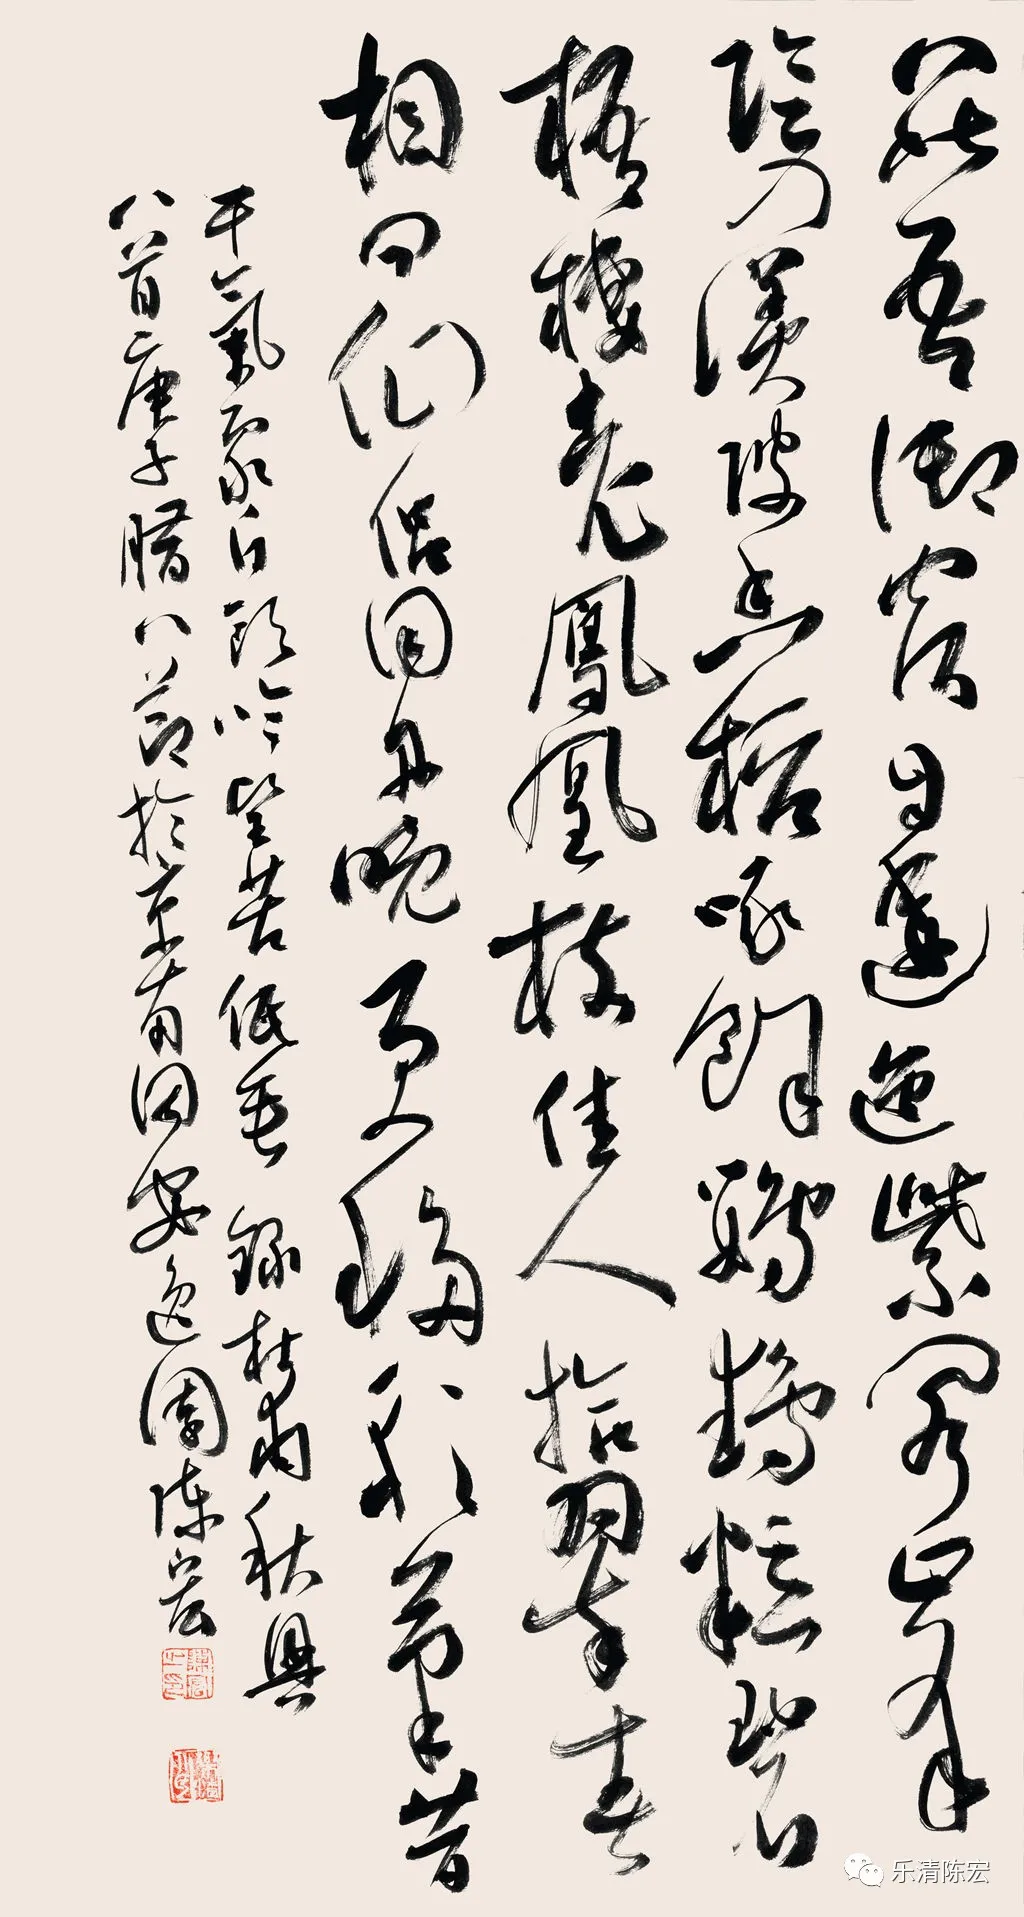 崑吾御宿自逶迤紫閣峰
陰入渼陂香稻啄餘鸚鵡粒碧
梧棲老鳳凰枝佳人拾翠春
相問仙侶同舟晚更移彩筆昔
干氣象白頭吟望苦低垂 錄杜甫秋興
八首庚子臘八節於京南固安逸園陳宏
乐清陈宏